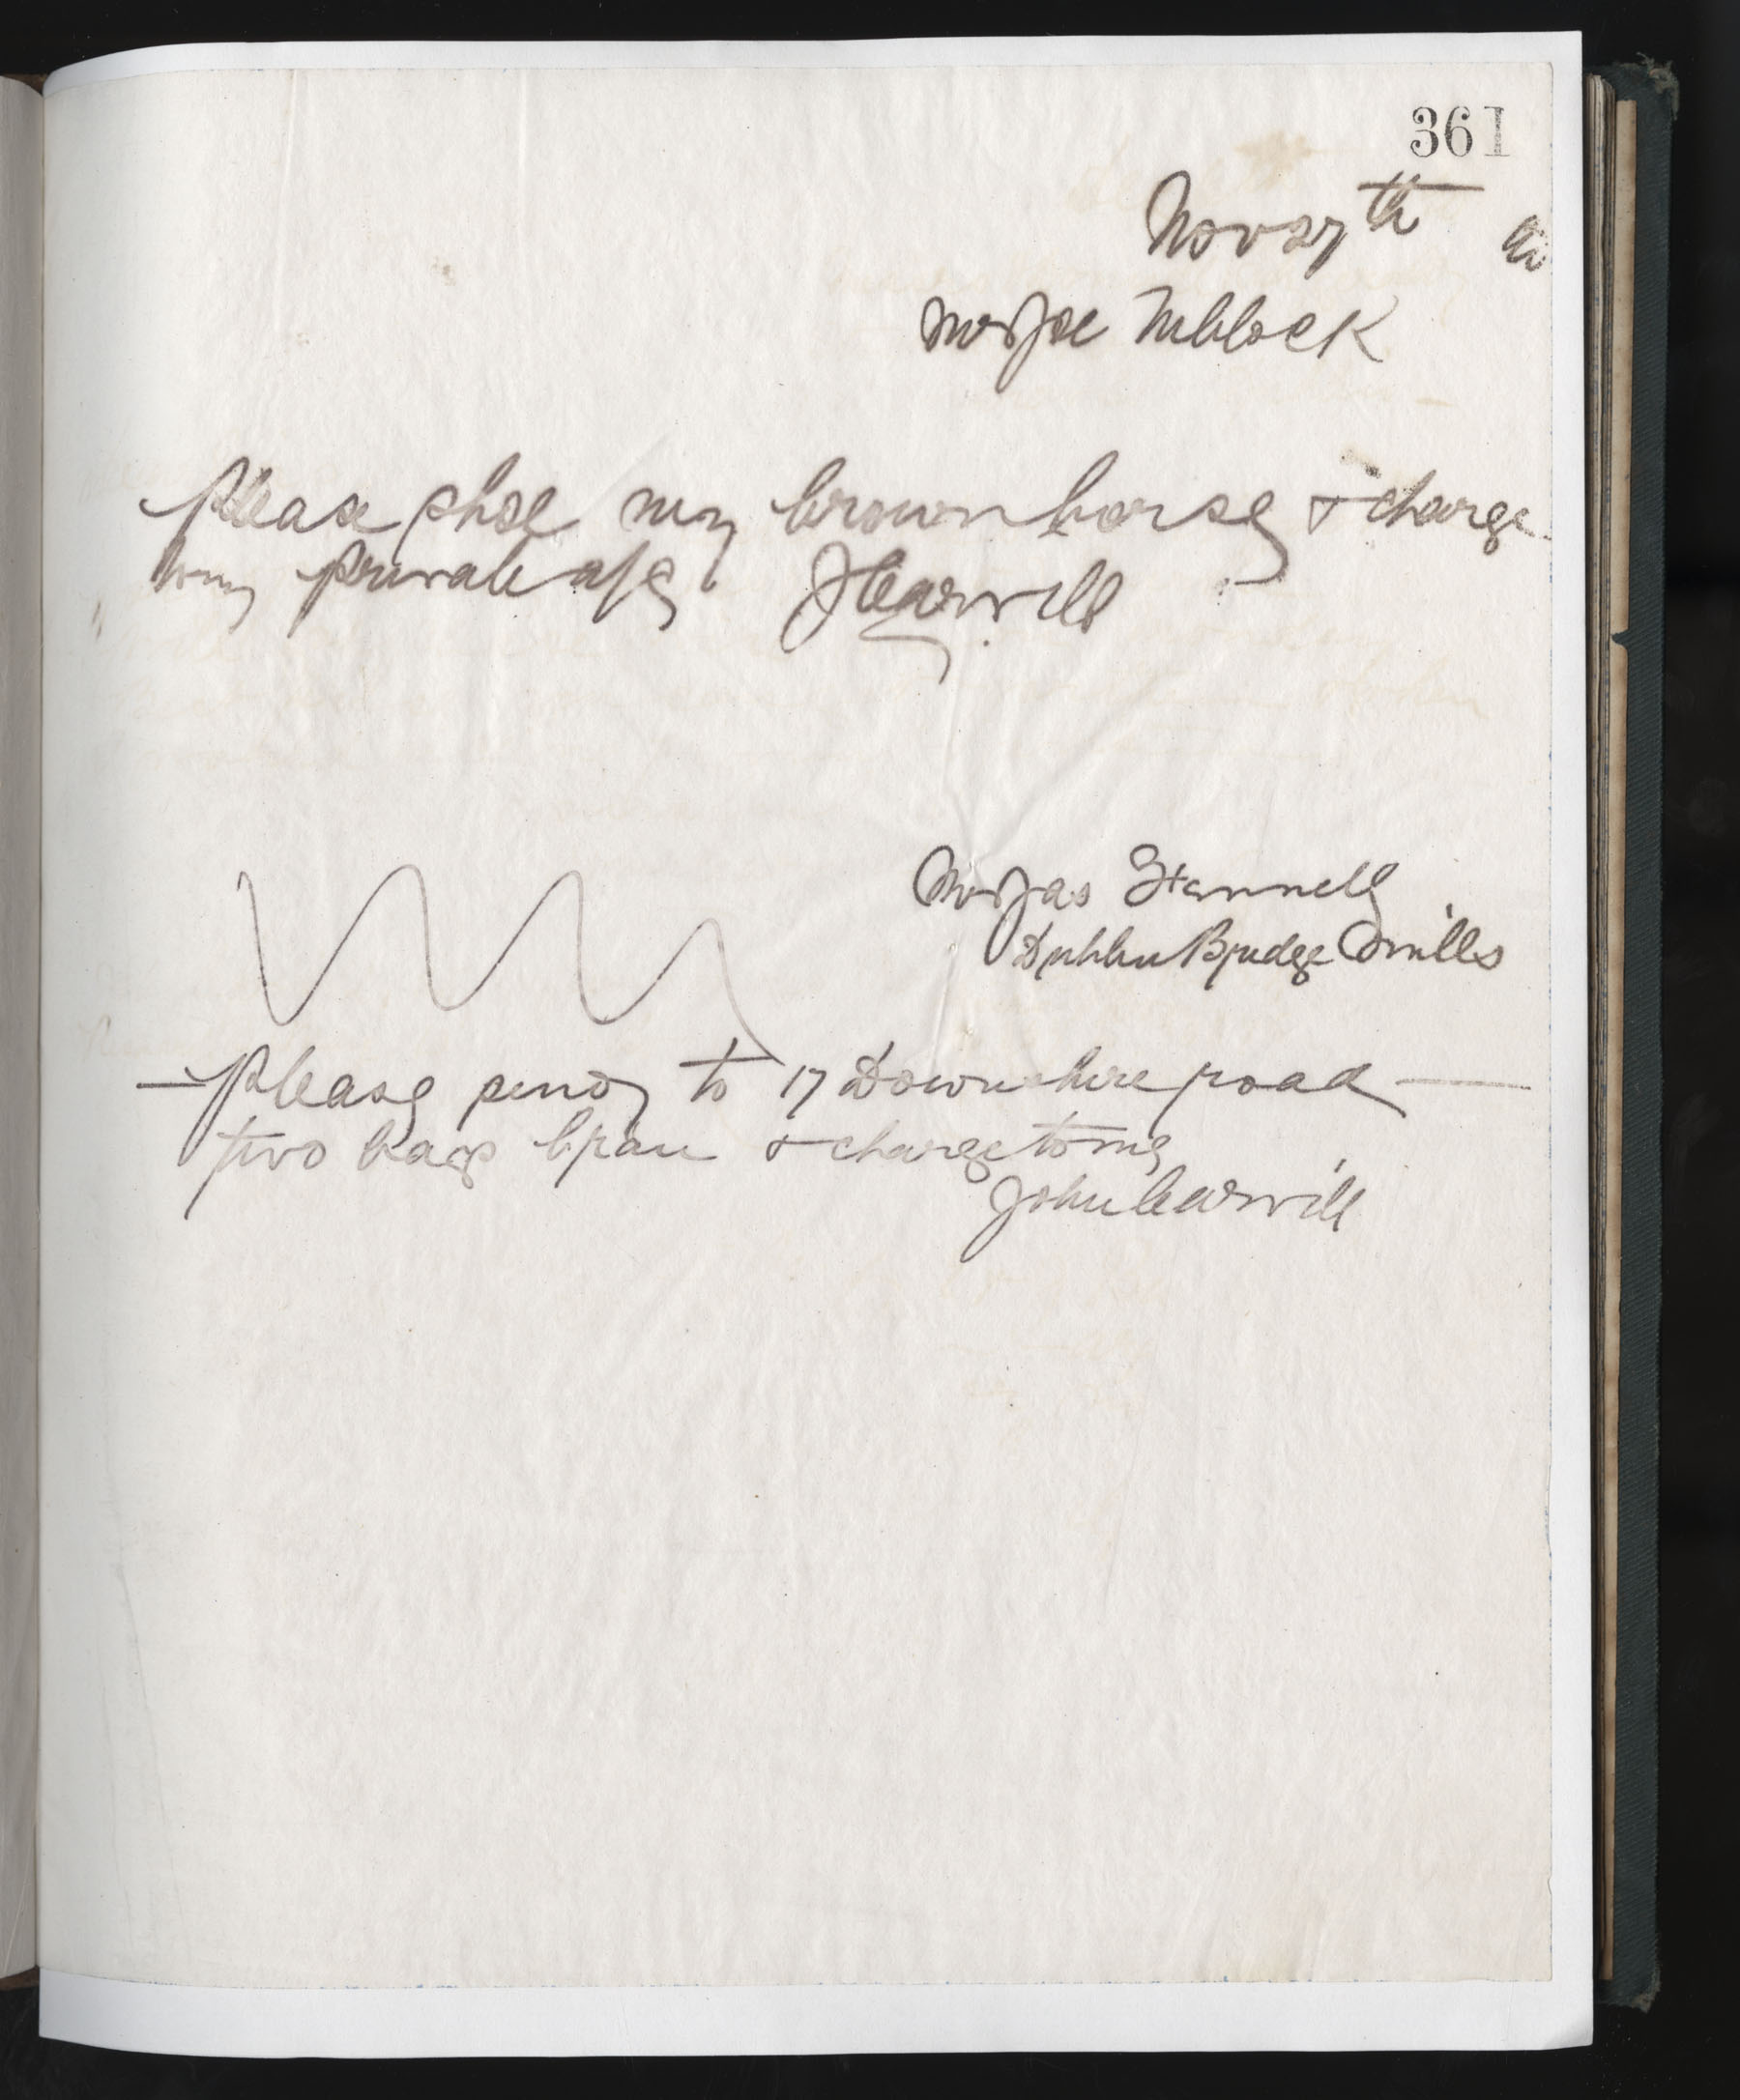 361
Nov 27th
Mr Joe
Please shoe my brown horse & charge
to my private a/c J Carvill
Mr Jas Fennell
Dublin Bridge Mills
Please send to 17 Downshire road
two bags bran & charge to me
John Carvill